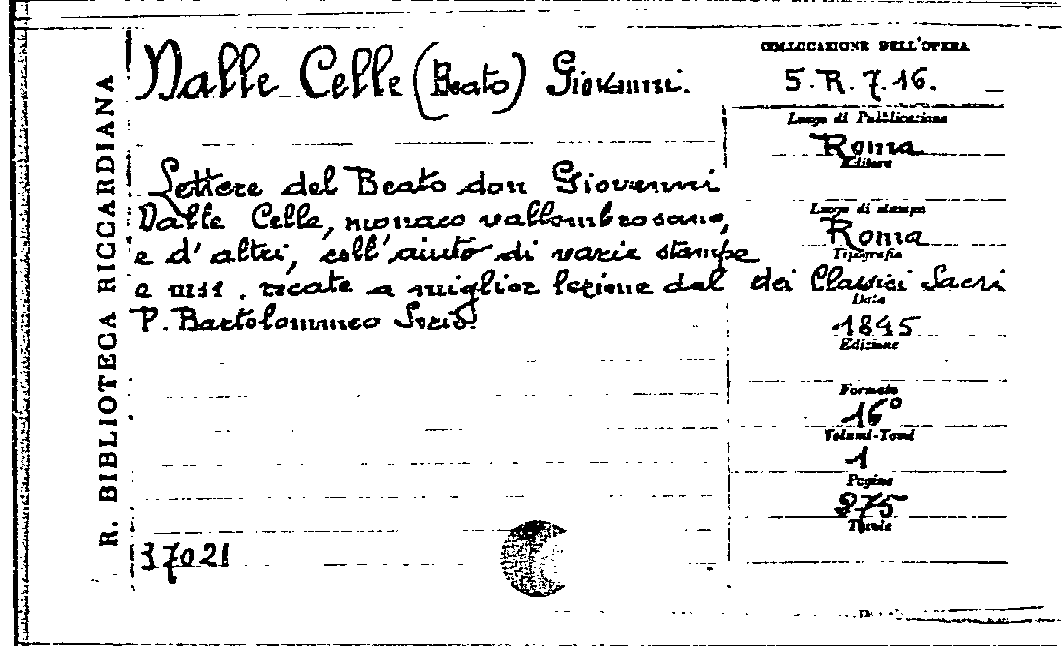 R. BIBLIOTECA RICCARDIANA
Dalle Celle (Beato) Giovanni.
Lettere del Beato don Giovanni
Dalle Celle, monaco vallombrosano,
e d'altri, coll'aiuto di varie stampe
e mss. recate a miglior lezione dal
P. Bartolommeo Sorio.
37021
COLLOCAZIONE DELL'OPERA
S.R.7.16.
Luogo di Pubblicazione
Roma
Editore
Luogo di stampa
Roma
Tipografia
dei Classici Sacri
Data
1845
Edizione
Formato
16°
Volumi-Tomi
1
Pagine
Tavole